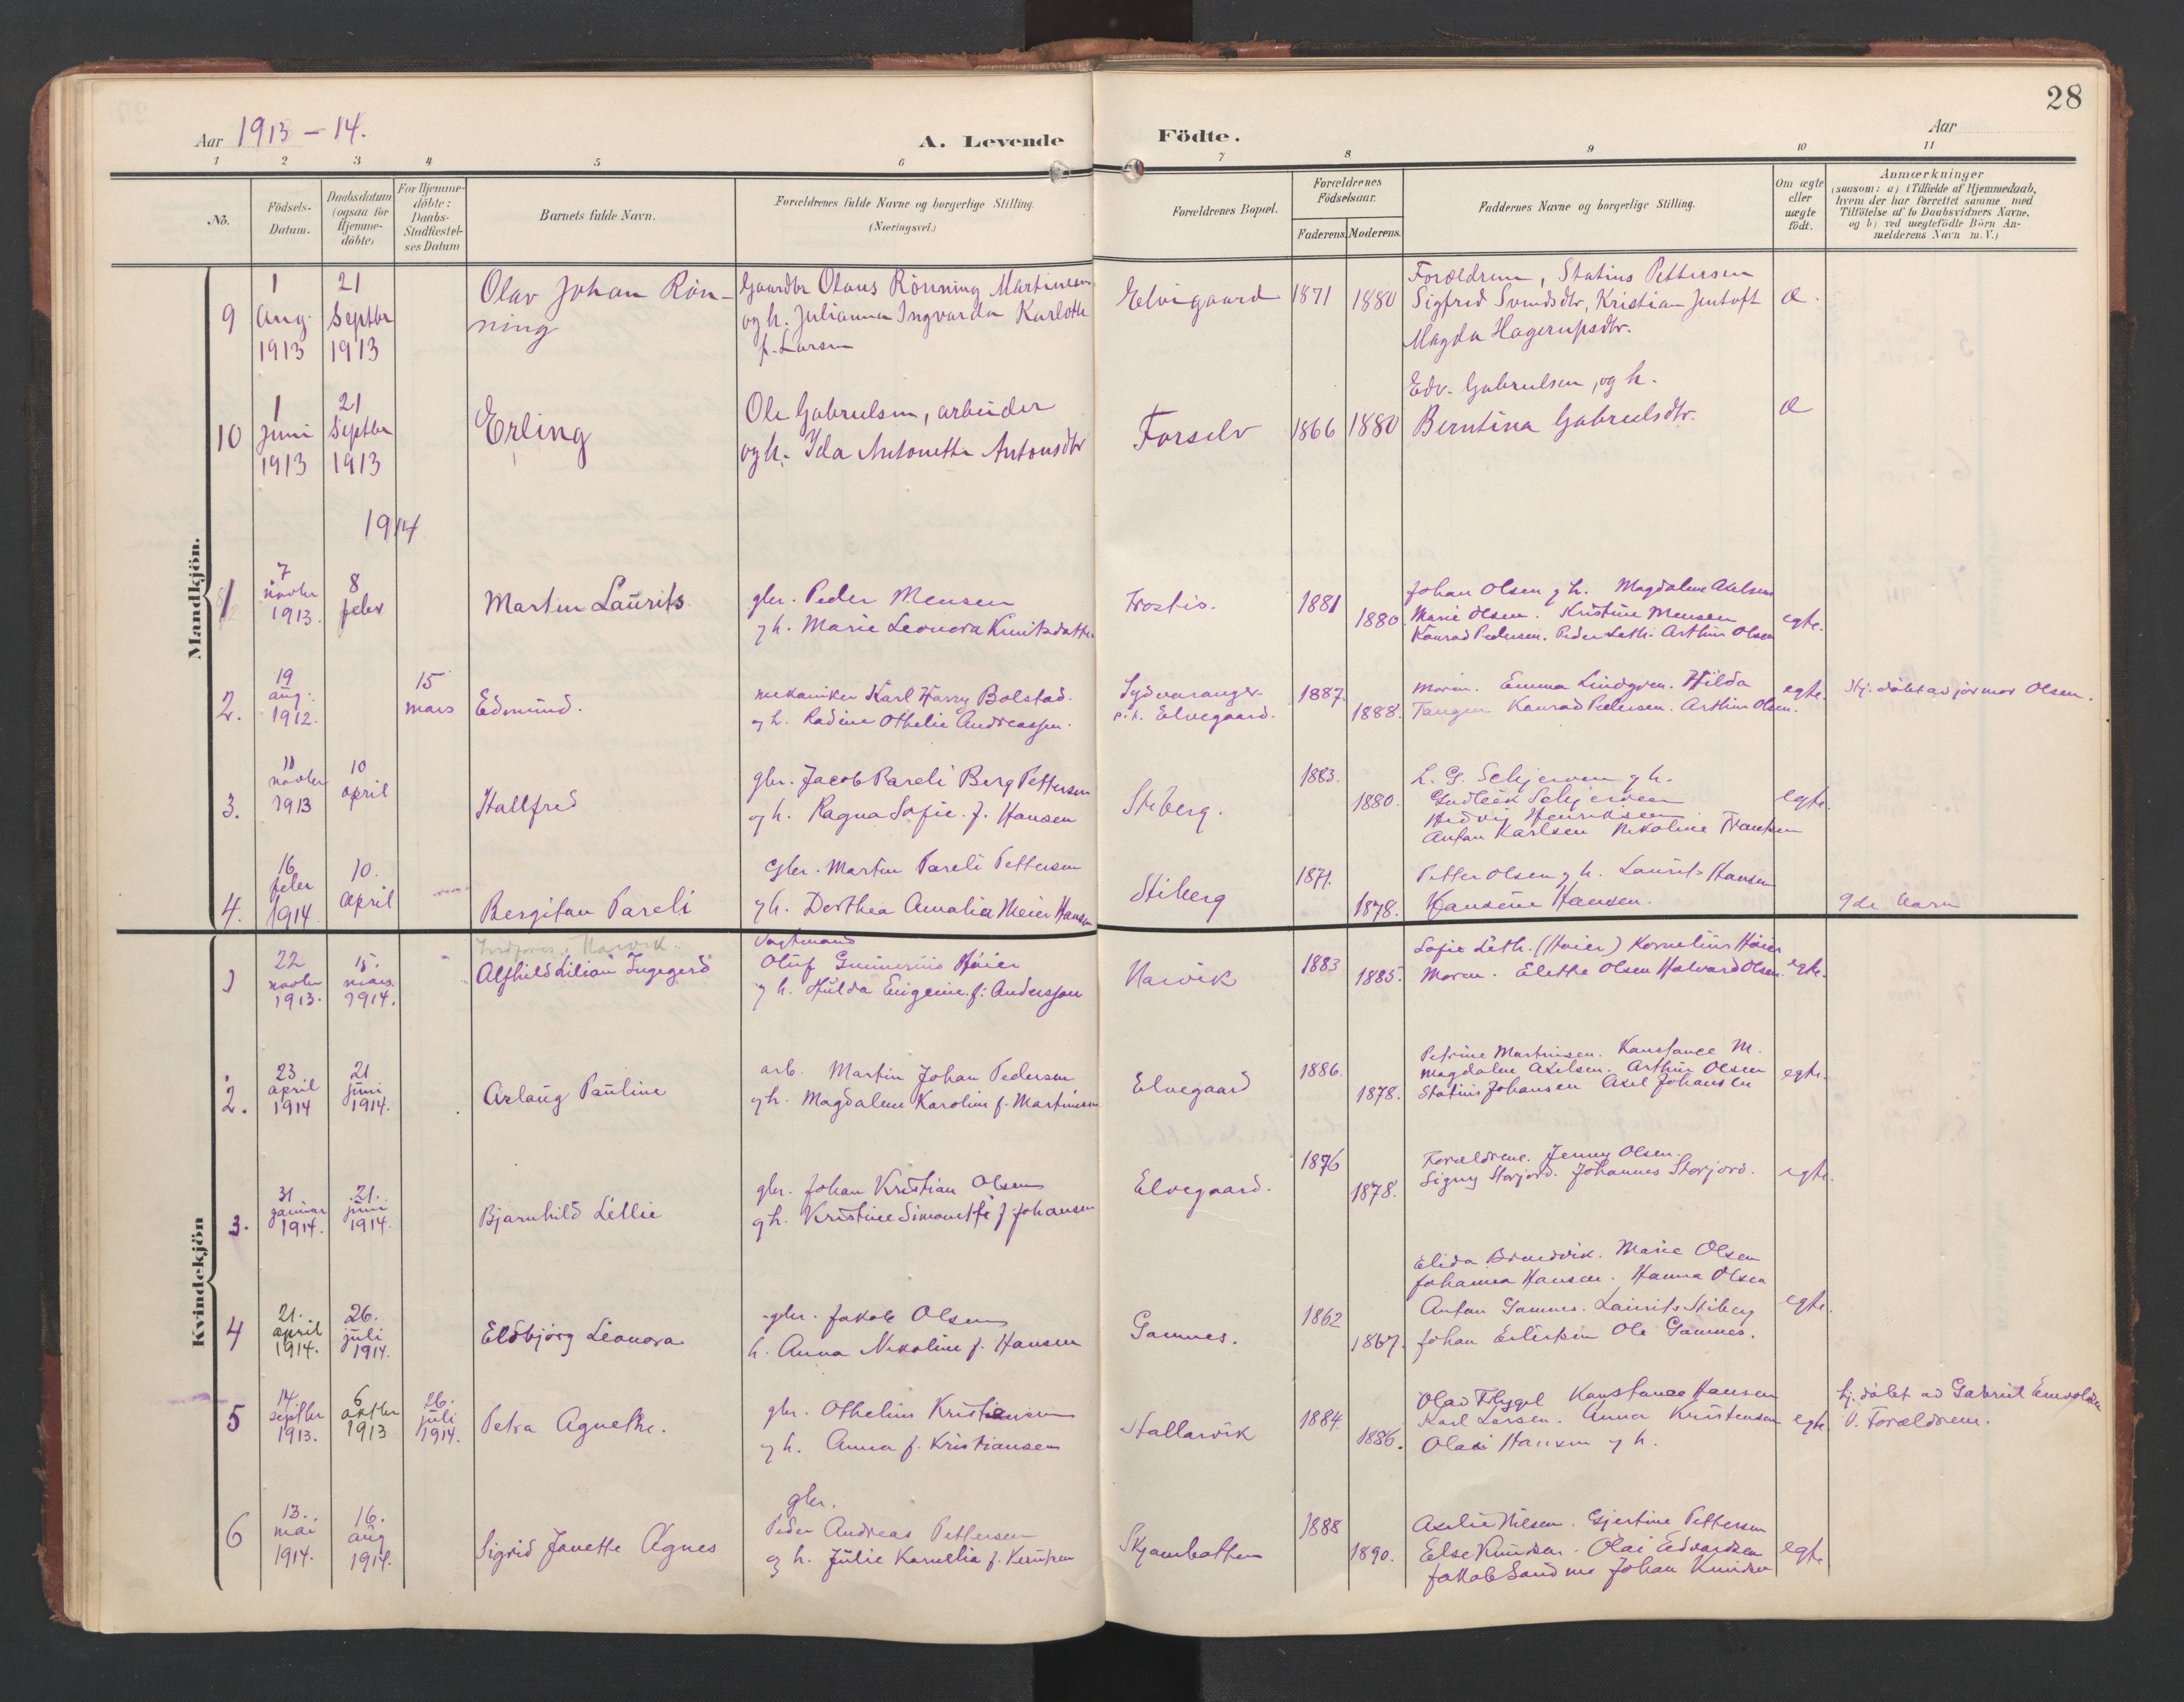 28
Aar 1913 – 14.
A. Levende Födte.
Aar
1 2 3 4 5 6 7 8 9 10 11
No.
Födsels-
Datum.
Daabsdatum
(ogsaa for
Hjemme-
döbte)
For Hjemme-
döbte:
Daabs-
Stadfæstel-
ses Datum
Barnets fulde Navn.
Forældrenes fulde Navne og borgerlige Stilling.
(Næringsvei.)
Forældrenes Bopæl.
Forældrenes
Födselsaar.
Faderens. Moderens.
Faddernes Navne og borgerlige Stilling.
Om ægte
eller
uægte
födt.
Anmærkninger
(saasom: a) i Tilfælde af Hjemmedaab,
hvem der har forrettet samme med
Tilföielse af to Daabsvidners Navne,
og b) ved uægtefödte Börn An-
melderens Navn m. V.)
Mandkjön.
9
1
Aug.
1913
21
Septbr
1913
Olav Johan Rön-
ning
Gaardbr Olaus Rönning Martinsen
og h. Julianna Ingvarda Karlotte
f. Larsen
Elvigaard
1871
1880
Forældrene, Statius Pettersen
Sigfred Svendsdtr, Kristian Jentoft
Magda Hagerupsdtr.
Æ.
10
1
Juni
1913
21
Septbr
1913
Erling
Ole Gabrielsen, arbeider
og h. Ida Antonette Antonsdtr
Forselv
1866
1880
Edv. Gabrielsen, og h.
Berntina Gabrielsdtr.
Æ
1914
1
7
novbr
1913.
8
febr
Martin Laurits
gbr. Peder Mensen
og h. Marie Leonora Knutsdatter
Trostis.
1881
1880.
Johan Olsen og h. Magdalene Axelsen
Marie Olsen. Kristine Mensen
Konrad Pedersen. Peder Leth. Arthur Olsen
egte.
2.
19
aug.
1912.
15
mars
Edmund.
mekaniker Karl Harry Bolstad.
og h. Radine Othelie Andreassen.
Sydvaranger
p.t. Elvegaard.
1887.
1888.
Moren. Emma Lindgren. Hilda
Tangen Konrad Pedersen. Arthur Olsen.
egte.
Hj. döbt av jormor Olsen.
3.
11
novbr
1913
10
april
Hallfred
gbr. Jacob Pareli Berg Pettersen
og h. Ragna Sofie f. Hansen
Stiberg.
1883.
1880.
L. G. Schjerven og h.
Gudleik Schjerven
Hedvig Henriksen
Anton Karlsen Nikoline Frantzen
egte.
4.
16
febr
1914
10.
april
Bergitan Pareli
Gbr. Martin Pareli Pettersen
og h. Dorthea Amalia Meier Hansen
Stiberg
1871.
1878.
Petter Olsen og h. Laurits Hansen
Hansine Hansen.
9de barn
Kvindekjön
1
22
novbr
1913.
15.
mars
1914.
Indföres i Narvik.
Alfhild Lilian Ingegerd
Vagtmand
Oluf Gunnerius Höier
og h. Hulda Eugenie f. Andersson
Narvik
1883
1885.
Sofie Leth. (Höier) Kornelius Höier
Moren. Elethe Olsen Halvard Olsen.
egte.
2.
23
april
1914
21
juni
1914.
Aslaug Pauline
arb. Martin Johan Pedersen
og h. Magdalene Karoline f. Martinsen
Elvegaard
1886.
1878.
Petrine Martinsen. Konstance M.
Magdalene Axelsen. Arthur Olsen
Statius Johansen Axel Johansen
egte.
3.
31
januar
1914.
21.
juni
1914.
Bjarnhild Lillie
gbr. Johan Kristian Olsen
og h. Kristine Simonette f. Johansen
Elvegaard.
1876
1878.
Forældrene. Jenny Olsen.
Signy Storjord. Johannes Storjord.
egte.
4
21.
april
1914.
26.
juli
1914.
Eldbjörg Leonora
gbr. Jakob Olsen
h. Anna Nikoline f. Hansen
Gamnes.
1862
1867.
Elida Brendvik. Marie Olsen
Johanna Hansen. Hanna Olsen
Anton Gamnes. Laurits Stiberg
Johan Eilertsen Ole Gamnes.
egte.
5
14
septbr
1913.
6
oktbr
1913
26.
juli
1914.
Petra Agnethe.
gbr. Othelius Kristiansen
og h. Anna f. Kristiansen
Hallarvik
1884.
1886.
Olad Flyggel Konstance Hansen
Karl Larsen. Anna Kristensen
Olai Hansen og h.
egte.
hj. döbt av Gabriel Enevoldsen
V. Forældrene.
6
13.
mai
1914.
16.
aug
1914.
Sigrid Janette Agnes
gbr.
Peder Andreas Pettersen
og h. Julie Kornelia f. Knutsen
Skjambotten
1888
1890.
Axelie Nilsen. Gjertine Pettersen
Else Knudsen. Olai Edvardsen
Jakob Sandmo Johan Knudsen
egte